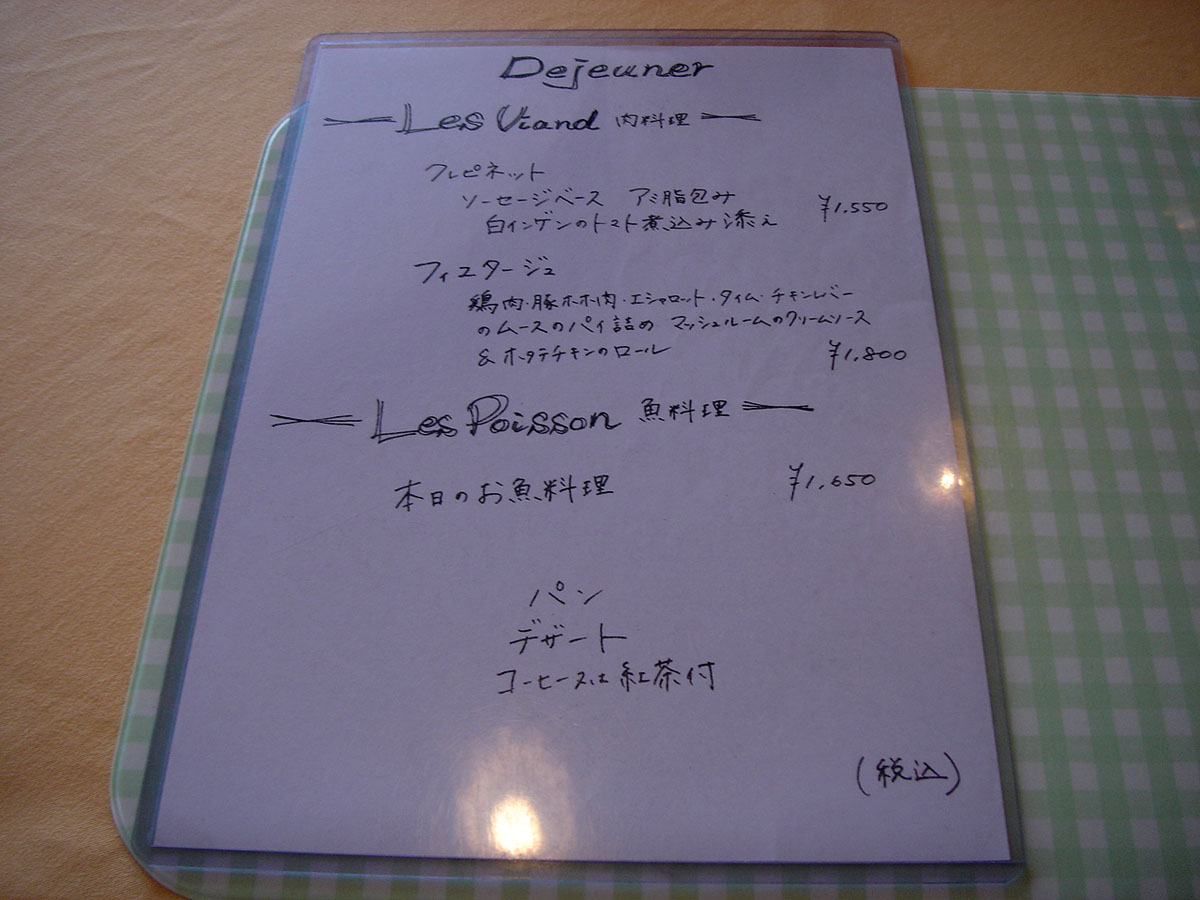 Dejeuner
Les Viand 肉料理
クレピネット
ソーセージベース アミ脂包み
白インゲンのトマト煮込み添え ¥1.550
フィユタージュ
鶏肉・豚ホホ肉・エシャロット・タイム・チキンレバー
のムースのパイ詰め マッシュルームのクリームソース
& ホタテチキンのロール ¥1.800
Les Poisson 魚料理
本日のお魚料理 ¥1.650
パン
デザート
コーヒー又は紅茶付
(税込)